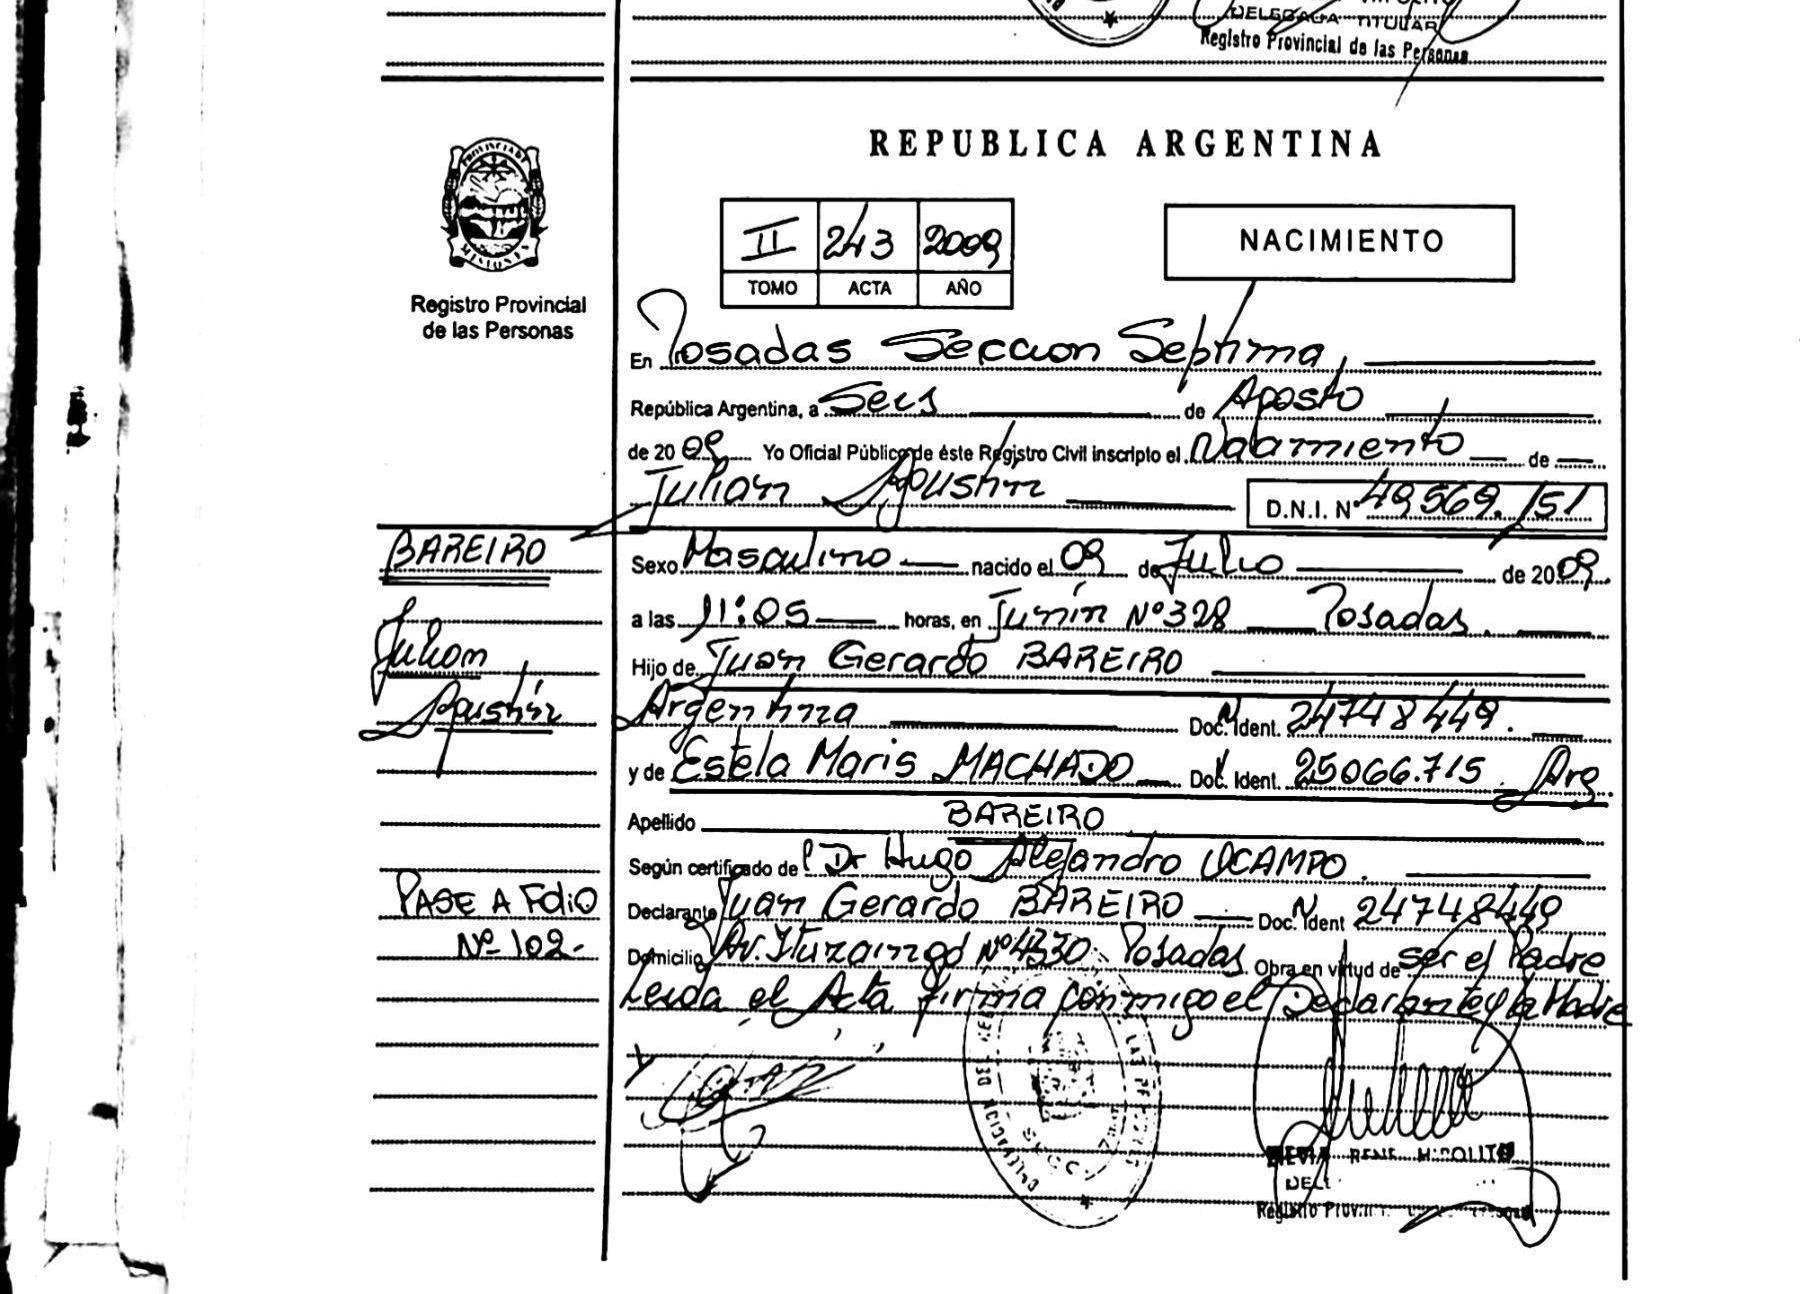 DELEGADA TITULAR
Registro Provincial de las Personas
REPUBLICA ARGENTINA
PROVINCIA DE
MISIONES
Registro Provincial
de las Personas
II 243 2009
TOMO ACTA AÑO
NACIMIENTO
En Posadas Seccion Septima
República Argentina, a Seis de Agosto
de 2009 Yo Oficial Público de éste Registro Civil inscripto el Nacimiento de
Julian Agustin D.N.I. Nº 49.569.151
BAREIRO
Julian
Agustin
PASE A Folio
Nº 102.-
Sexo Masculino nacido el 09 de Julio de 2009
a las 11:05 horas, en Junin Nº 328 Posadas.
Hijo de Juan Gerardo BAREIRO
Argentina Doc. Ident. 24748449.
y de Estela Maris MACHADO Doc. Ident. 25066.715. Arg
Apellido BAREIRO
Según certificado de l Dr Hugo Alejandro OCAMPO.
Declarante Juan Gerardo BAREIRO Doc. Ident 24748449
Domicilio Av. Ituzaingó Nº 4330 Posadas Obra en virtud de ser el Padre
Leida el Acta firma conmigo el Declarante y la Madre
RENE HIPOLITO
Registro